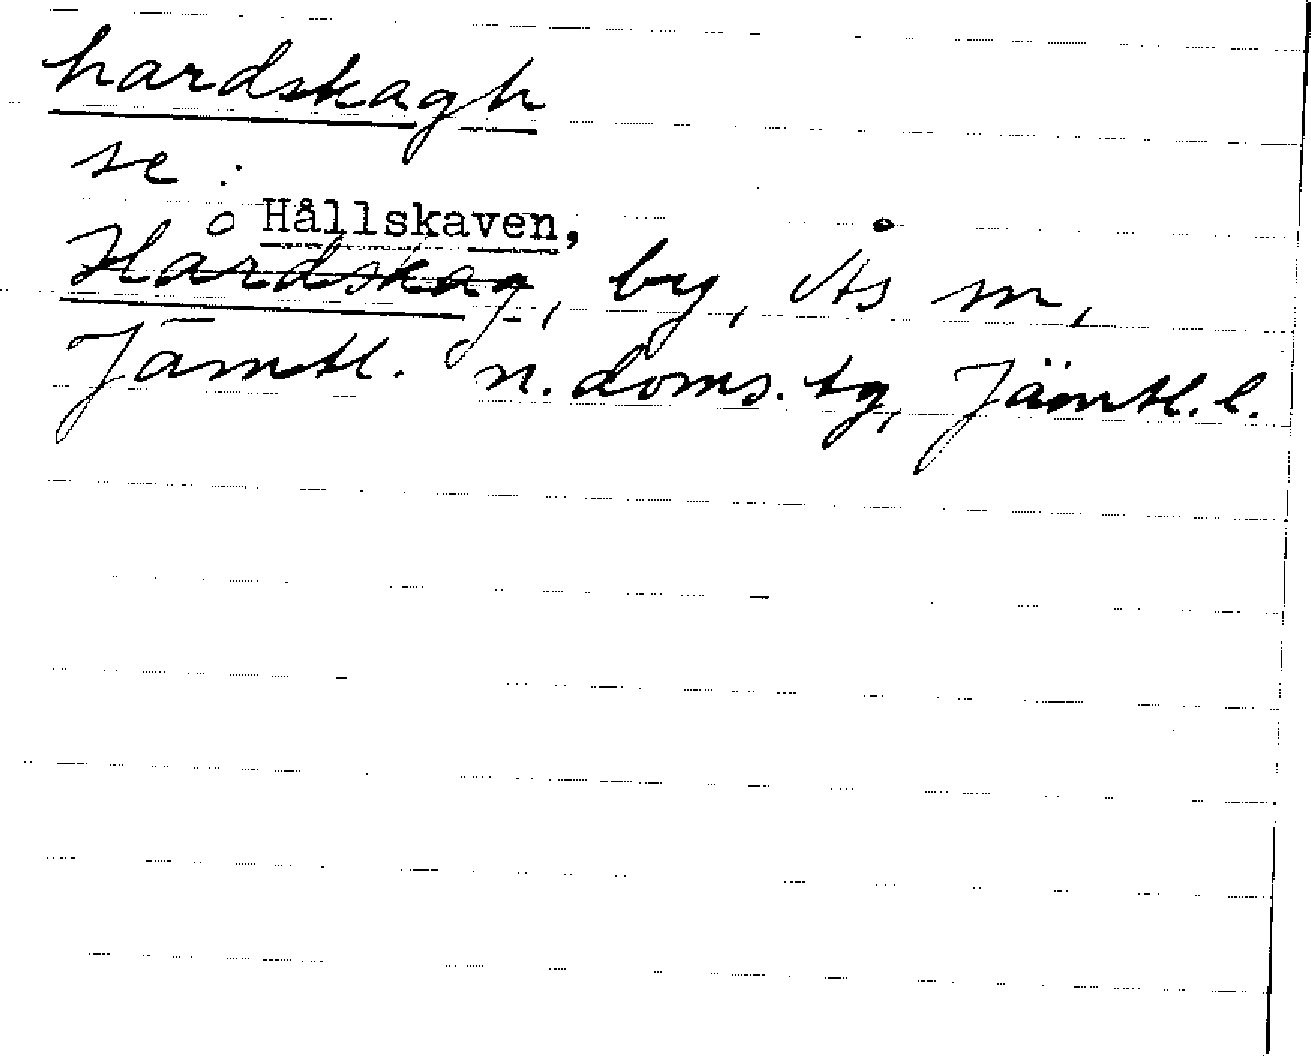 hardskagh
se :
Hållskaven,
Hårdskag, by, Ås sn,
Jämtl. n. doms. tg, Jämtl. l.